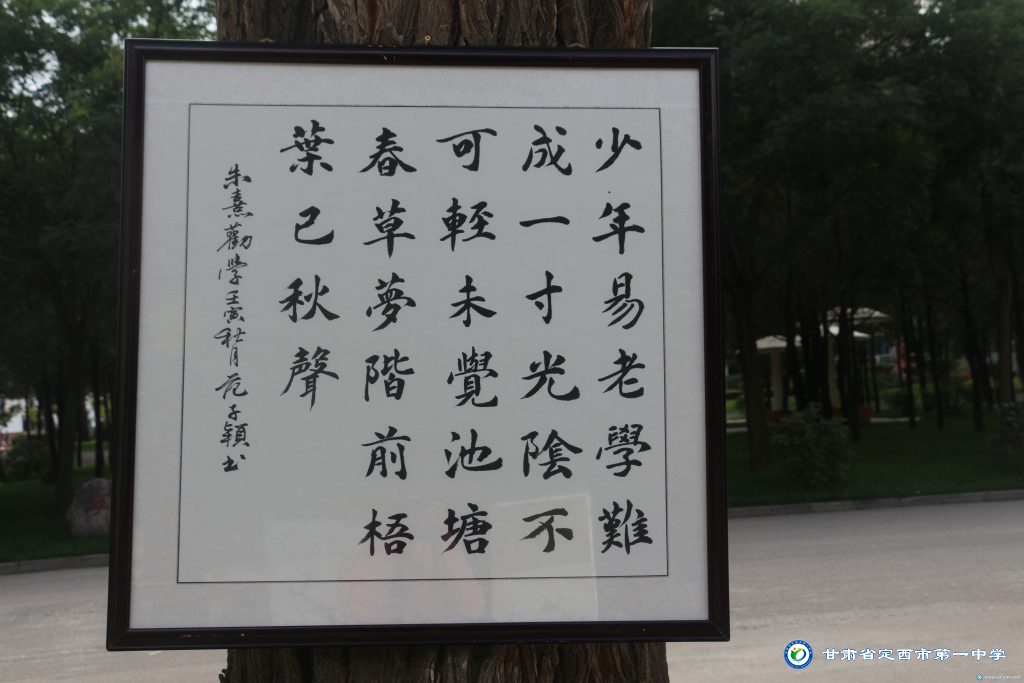 少年易老學難
成一寸光陰不
可輕未覺池塘
春草夢階前梧
葉已秋聲
朱熹勸學壬寅秋月范子穎书
甘肃省定西市第一中学